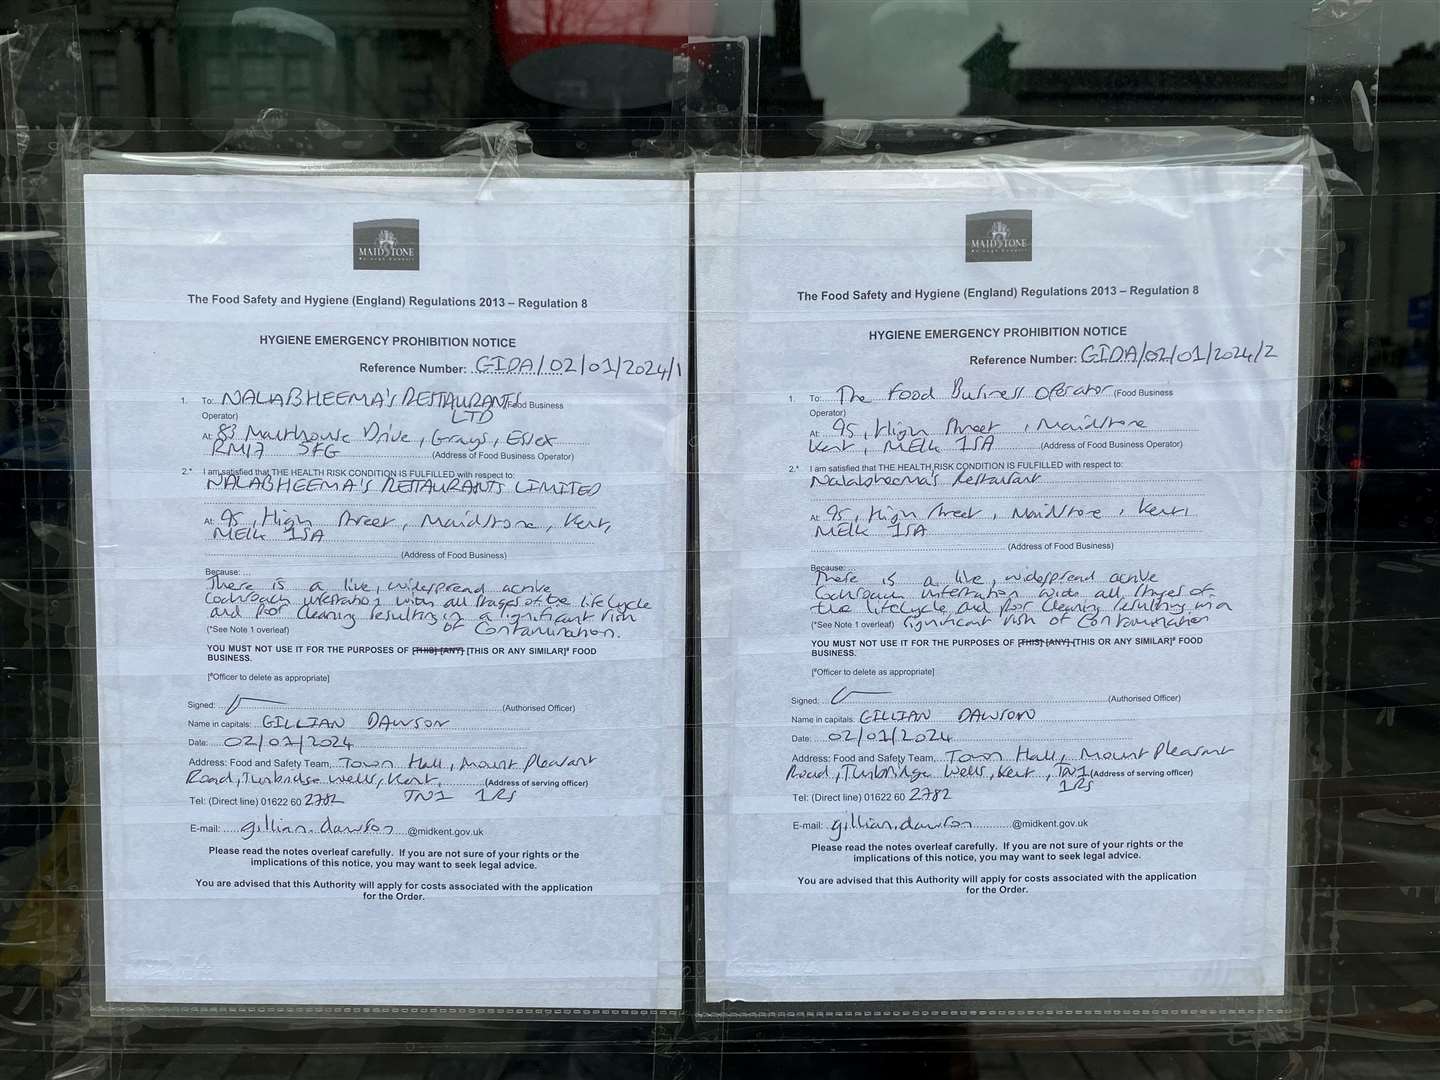 MAIDSTONE
Borough Council
The Food Safety and Hygiene (England) Regulations 2013 – Regulation 8
HYGIENE EMERGENCY PROHIBITION NOTICE
Reference Number: GIDA/02/01/2024/1
1. To: NALABHEEMA'S RESTAURANTS (Food Business
Operator) LTD
At 83 Malthouse Drive, Grays, Essex
RM17 (Address of Food Business Operator)
2.* I am satisfied that THE HEALTH RISK CONDITION IS FULFILLED with respect to:
NALABHEEMA'S RESTAURANTS LIMITED
At 95, High Street, Maidstone, Kent,
ME14 1SA
(Address of Food Business)
Because: ...
There is a live, widespread active
Cockroach infestation with all stages of the life cycle
and poor cleaning resulting in a significant risk
(*See Note 1 overleaf) of Contamination.
YOU MUST NOT USE IT FOR THE PURPOSES OF [THIS] [ANY] [THIS OR ANY SIMILAR]# FOOD
BUSINESS.
[#Officer to delete as appropriate]
Signed: (Authorised Officer)
Name in capitals: GILLIAN DAWSON
Date: 02/01/2024
Address: Food and Safety Team, Town Hall, Mount Pleasant
Road, Tunbridge Wells, Kent, (Address of serving officer)
Tel: (Direct line) 01622 60 2782 TN1 1RS
E-mail: gillian.dawson @midkent.gov.uk
Please read the notes overleaf carefully. If you are not sure of your rights or the
implications of this notice, you may want to seek legal advice.
You are advised that this Authority will apply for costs associated with the application
for the Order.
MAIDSTONE
Borough Council
The Food Safety and Hygiene (England) Regulations 2013 – Regulation 8
HYGIENE EMERGENCY PROHIBITION NOTICE
Reference Number: GIDA/02/01/2024/2
1. To: The Food Business Operator (Food Business
Operator)
At 95, High Street, Maidstone
Kent, ME14 1SA (Address of Food Business Operator)
2.* I am satisfied that THE HEALTH RISK CONDITION IS FULFILLED with respect to:
Nalabheema's Restaurant
At 95, High Street, Maidstone, Kent,
ME14 1SA
(Address of Food Business)
Because: ...
There is a live, widespread active
Cockroach infestation with all stages of
the lifecycle and poor cleaning resulting in a
(*See Note 1 overleaf) significant risk of contamination
YOU MUST NOT USE IT FOR THE PURPOSES OF [THIS] [ANY] [THIS OR ANY SIMILAR]# FOOD
BUSINESS.
[#Officer to delete as appropriate]
Signed: (Authorised Officer)
Name in capitals: GILLIAN DAWSON
Date: 02/01/2024
Address: Food and Safety Team, Town Hall, Mount Pleasant
Road, Tunbridge Wells, Kent, TN1 (Address of serving officer)
Tel: (Direct line) 01622 60 2782 1RS
E-mail: gillian.dawson @midkent.gov.uk
Please read the notes overleaf carefully. If you are not sure of your rights or the
implications of this notice, you may want to seek legal advice.
You are advised that this Authority will apply for costs associated with the application
for the Order.